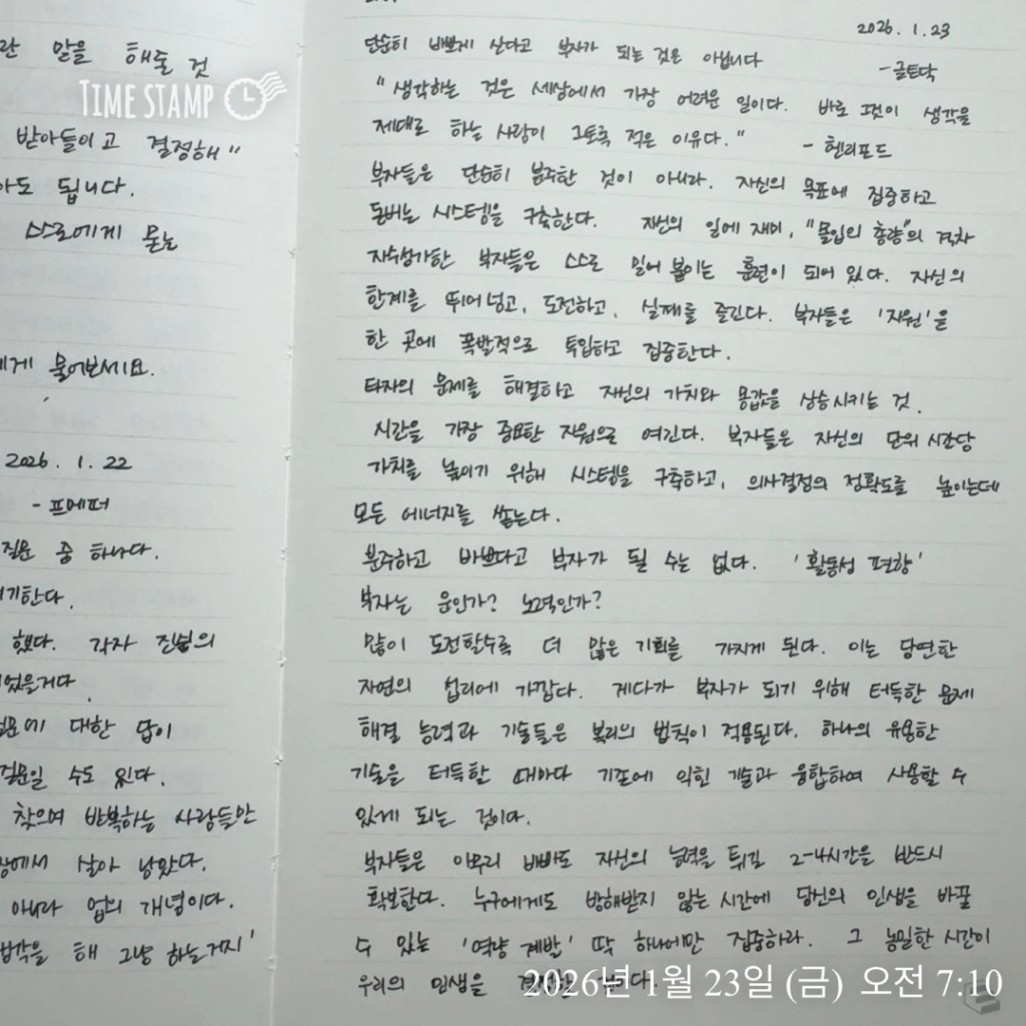 란 말을 해줄 것
TIME STAMP
받아들이고 결정해"
아도 됩니다.
스스로에게 묻는
에게 물어보세요.
2026. 1. 22
- 프메퍼
질문 중 하나다.
했다. 각자 진쉼의
질문에 대한 답이
질문일 수도 있다.
찾으며 반복하는 사람들만
살아 남았다.
아니라 업의 개념이다.
생각을 해 그냥 하는거지'
2026. 1. 23
단순히 바쁘게 산다고 부자가 되는 것은 아닙니다
- 글토닥
"생각하는 것은 세상에서 가장 어려운 일이다. 바로 그것이 생각을
제대로 하는 사람이 그토록 적은 이유다." - 헨리포드
부자들은 단순히 분주한 것이 아니라. 자신의 목표에 집중하고
돈버는 시스템을 구축한다. 자신의 일에 재미, "몰입의 총량"의 격차
자수성가한 부자들은 스스로 밀어 붙이는 훈련이 되어 있다. 자신의
한계를 뛰어넘고, 도전하고, 실패를 즐긴다. 부자들은 '자원'을
한 곳에 폭발적으로 투입하고 집중한다.
타자의 문제를 해결하고 자신의 가치와 몸값을 상승시키는 것.
시간을 가장 중요한 자원으로 여긴다. 부자들은 자신의 단위 시간당
가치를 높이기 위해 시스템을 구축하고, 의사결정의 정확도를 높이는데
모든 에너지를 쏟는다.
분주하고 바쁘다고 부자가 될 수는 없다. '활동성 편향'
부자는 운인가? 노력인가?
많이 도전할수록 더 많은 기회를 가지게 된다. 이는 당연한
자연의 섭리에 가깝다. 게다가 부자가 되기 위해 터득한 문제
해결 능력과 기술들은 복리의 법칙이 적용된다. 하나의 유용한
기술을 터득할 때마다 기존에 익힌 기술과 융합하여 사용할 수
있게 되는 것이다.
부자들은 아무리 바빠도 자신의 능력을 튀길 2-4시간을 반드시
확보한다. 누구에게도 방해받지 않는 시간에 당신의 인생을 바꿀
수 있는 '역량 계발' 딱 하나에만 집중하라. 그 농밀한 시간이
우리의 인생을
2026년 1월 23일 (금) 오전 7:10